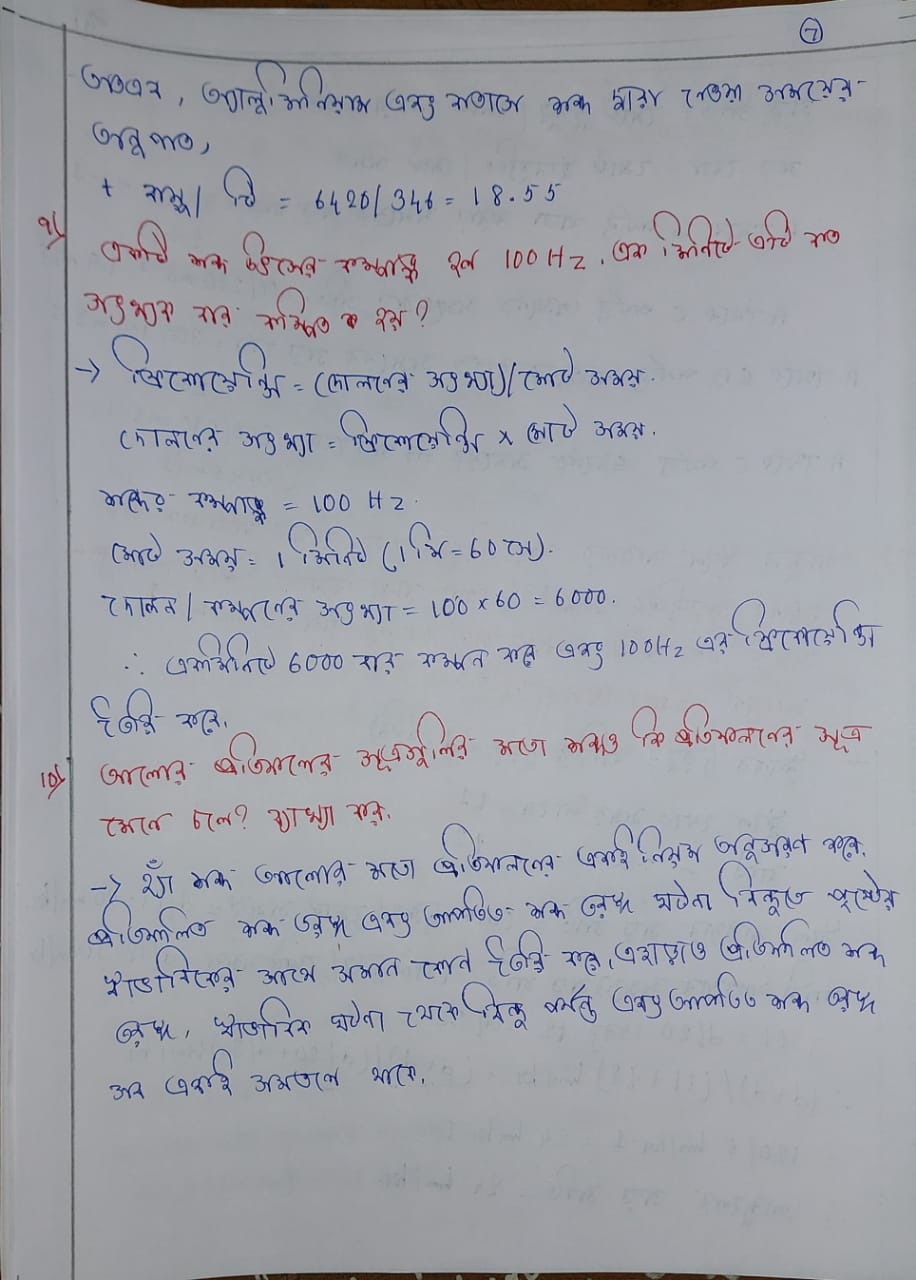 ⑦
অতএব, অ্যালুমিনিয়াম এবং বাতাসে শব্দ দ্বারা নেওয়া সময়ের
অনুপাত,
t বায়ু / টি = 6420/346 = 18.55
৯) একটি শব্দ উৎসের কম্পাঙ্ক হল 100 Hz. এক মিনিটে এটি কত
সংখ্যক বার কম্পিত হয়?
→ ফ্রিকোয়েন্সি = দোলনের সংখ্যা / মোট সময়.
দোলনের সংখ্যা = ফ্রিকোয়েন্সি × মোট সময়.
শব্দের কম্পাঙ্ক = 100 Hz.
মোট সময় = 1 মিনিট (1 মি = 60 সে).
দোলন / কম্পনের সংখ্যা = 100 × 60 = 6000.
∴ একমিনিটে 6000 বার কম্পন করে এবং 100Hz এর ফ্রিকোয়েন্সি
তৈরি করে.
10) আলোর প্রতিফলনের সূত্রগুলির মতো শব্দও কি প্রতিফলনের সূত্র
মেনে চলে? ব্যাখ্যা কর.
→ হ্যাঁ শব্দ আলোর মতো প্রতিফলনের একই নিয়ম অনুসরণ করে.
প্রতিফলিত শব্দ তরঙ্গ এবং আপতিত শব্দ তরঙ্গ ঘটনা বিন্দুতে পৃষ্ঠের
স্বাভাবিকের সাথে সমান কোন তৈরি করে, এছাড়াও প্রতিফলিত শব্দ
তরঙ্গ, স্বাভাবিক ঘটনা থেকে বিন্দু পর্যন্ত এবং আপতিত শব্দ তরঙ্গ
সব একই সমতলে থাকে.